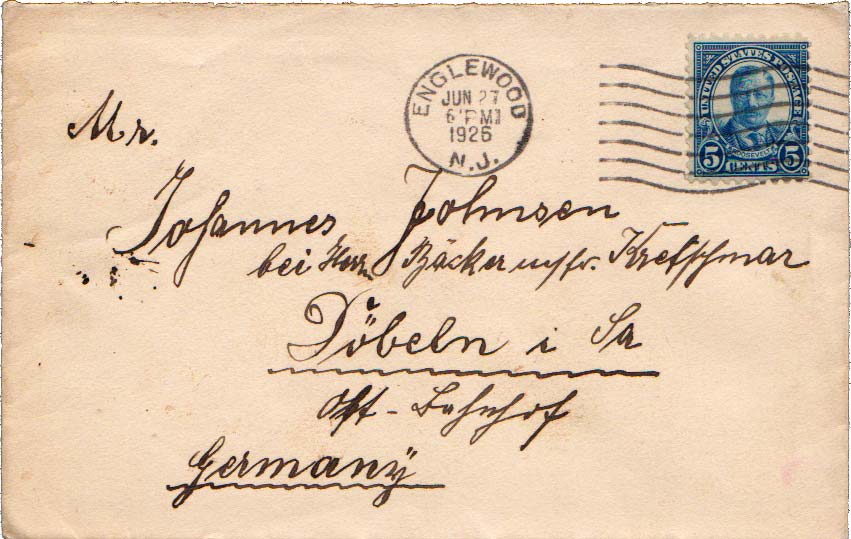 ENGLEWOOD
JUN 27
6 PM
1926
N.J.
UNITED STATES POSTAGE
ROOSEVELT
5 CENTS 5
Mr.
Johannes Johnsen
bei Herrn Bäckermstr. Kretschmar
Döbeln i Sa
Ost-Bahnhof
Germany